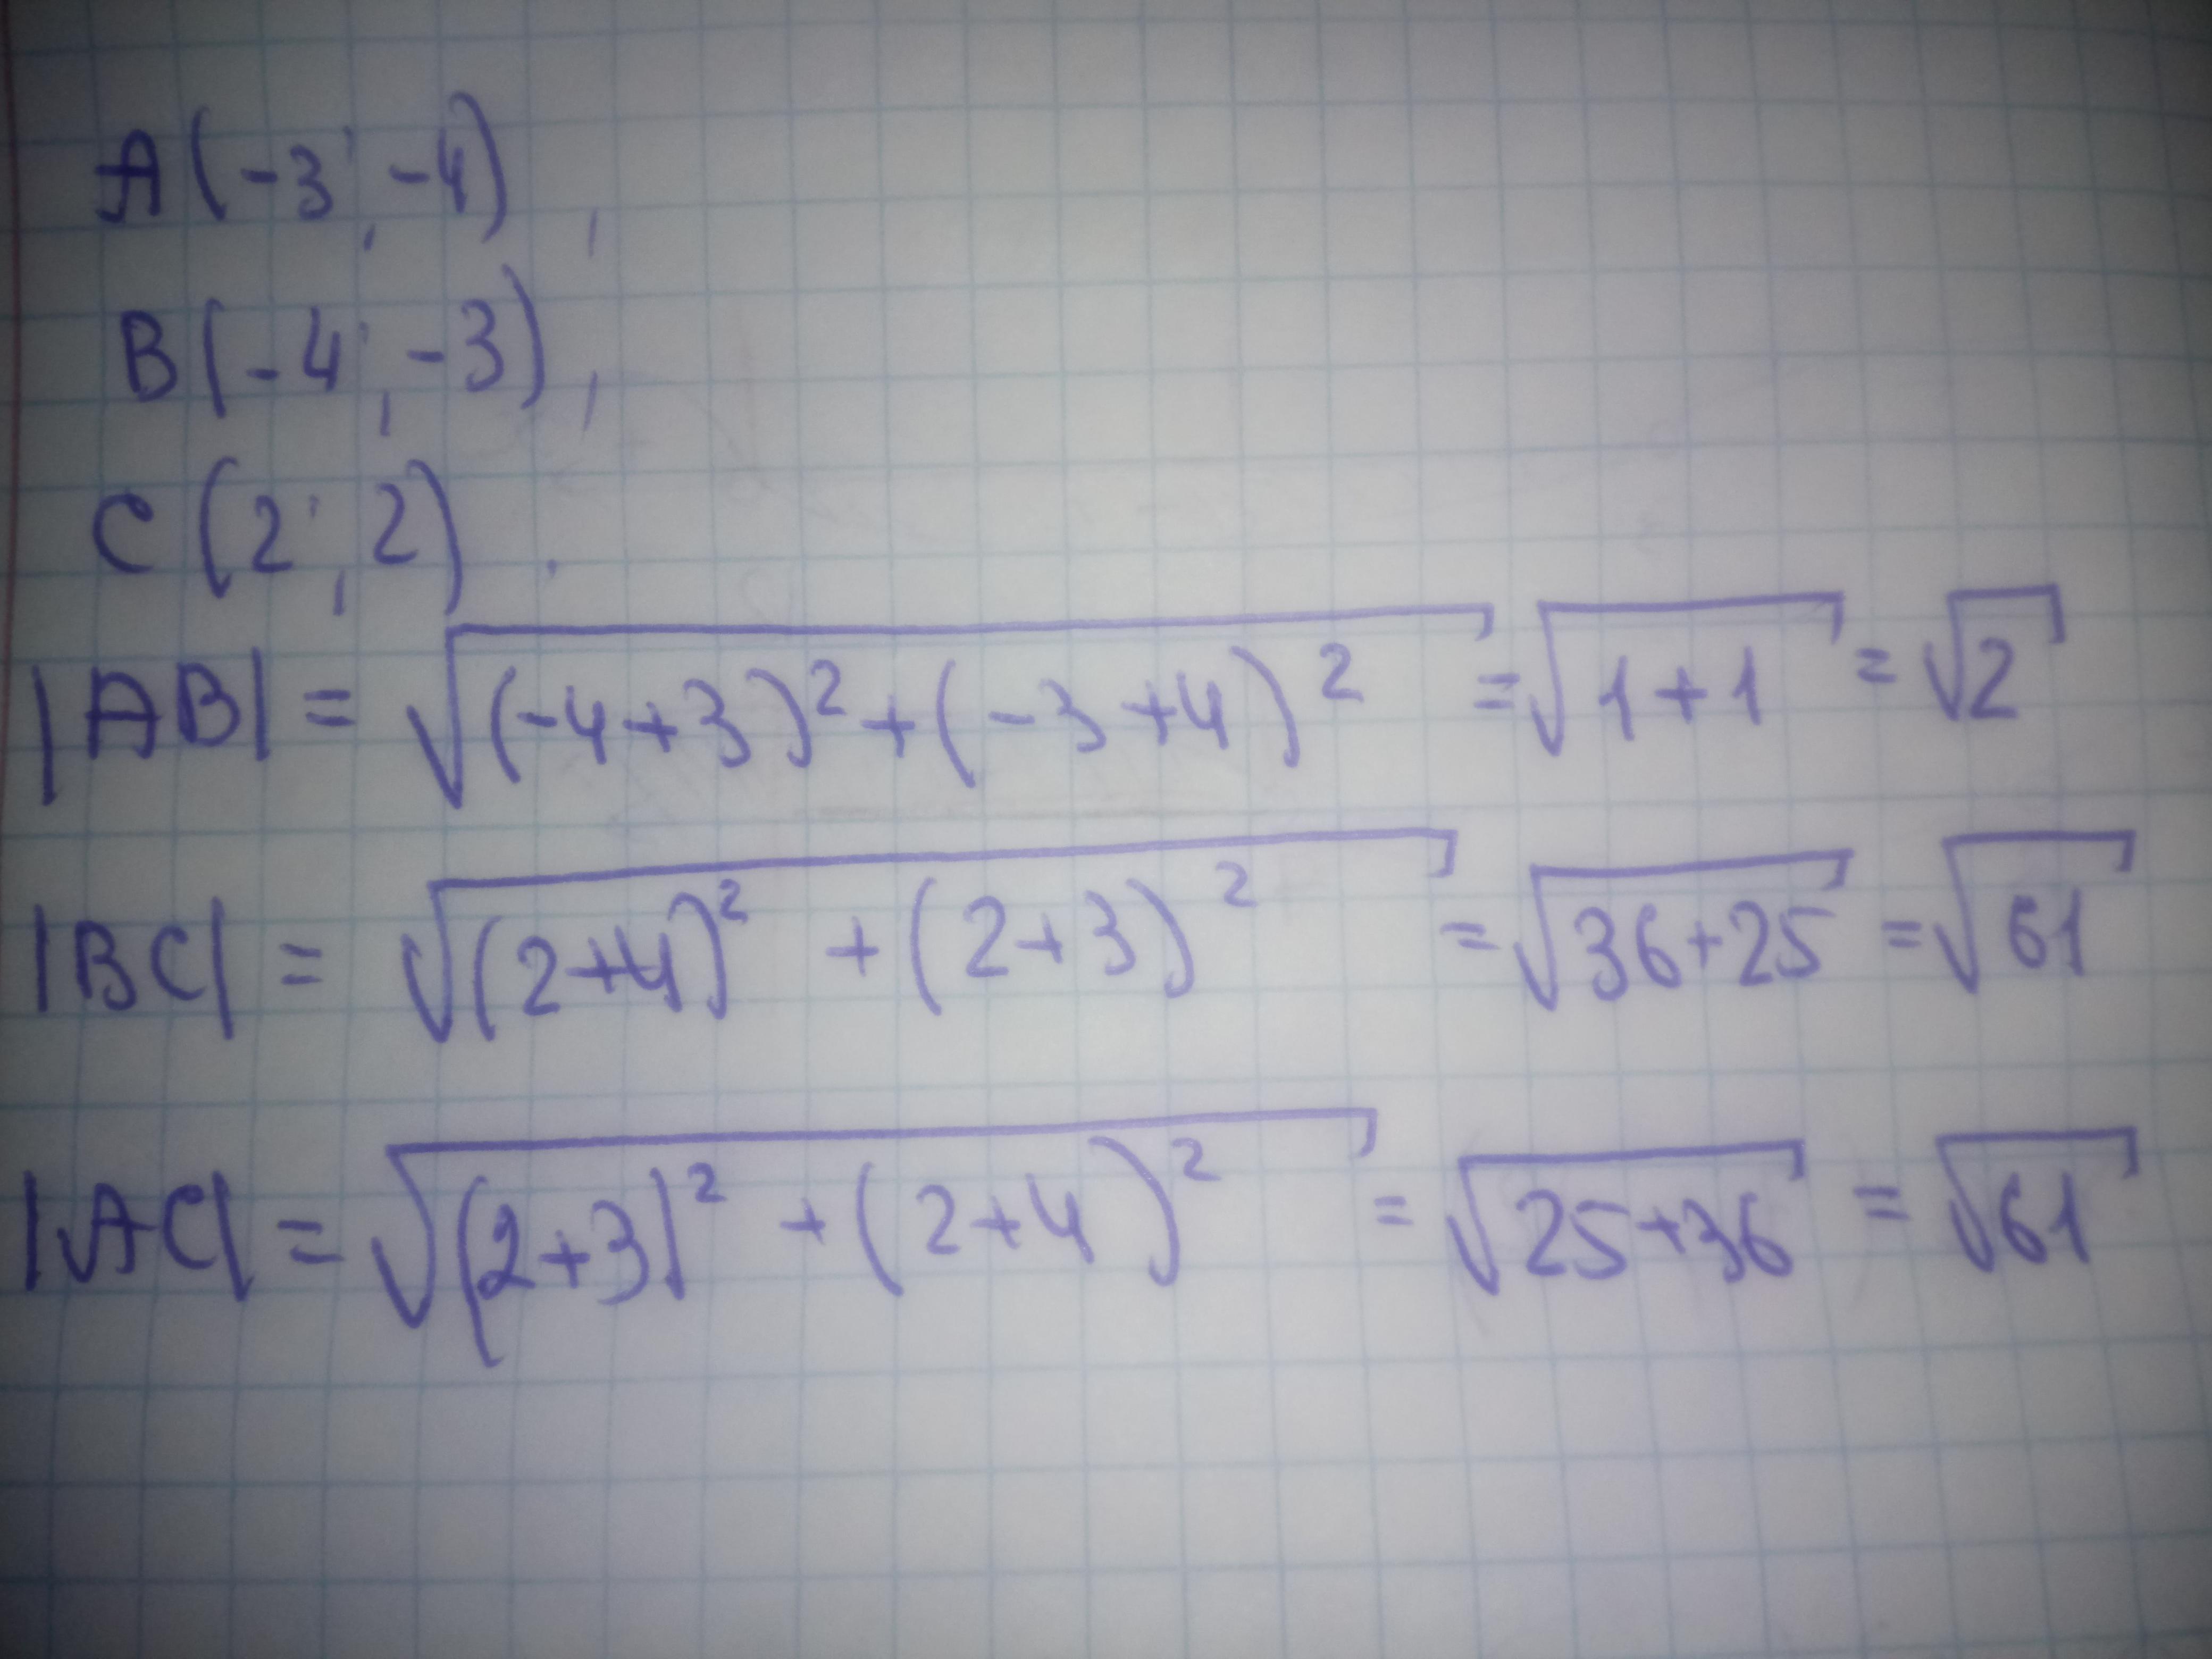 A(-3; -4),
B(-4; -3),
C(2; 2).
|AB| = √(-4+3)² + (-3+4)² = √1+1 = √2
|BC| = √(2+4)² + (2+3)² = √36+25 = √61
|AC| = √(2+3)² + (2+4)² = √25+36 = √61